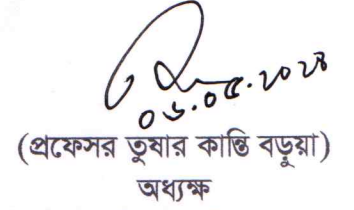 ০৬.০৫.২০২৪
(প্রফেসর তুষার কান্তি বড়ুয়া)
অধ্যক্ষ